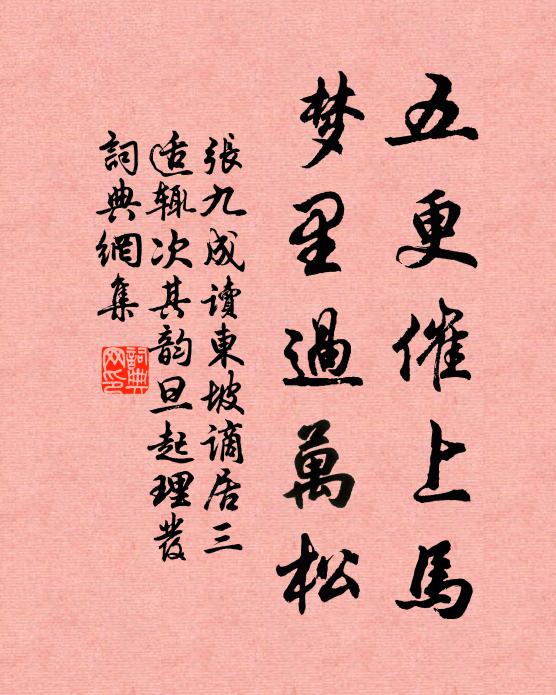 五更催上馬
梦里過萬松
張九成讀東坡謫居三
适輒次其韵旦起理發
詞典網集
詞典網印